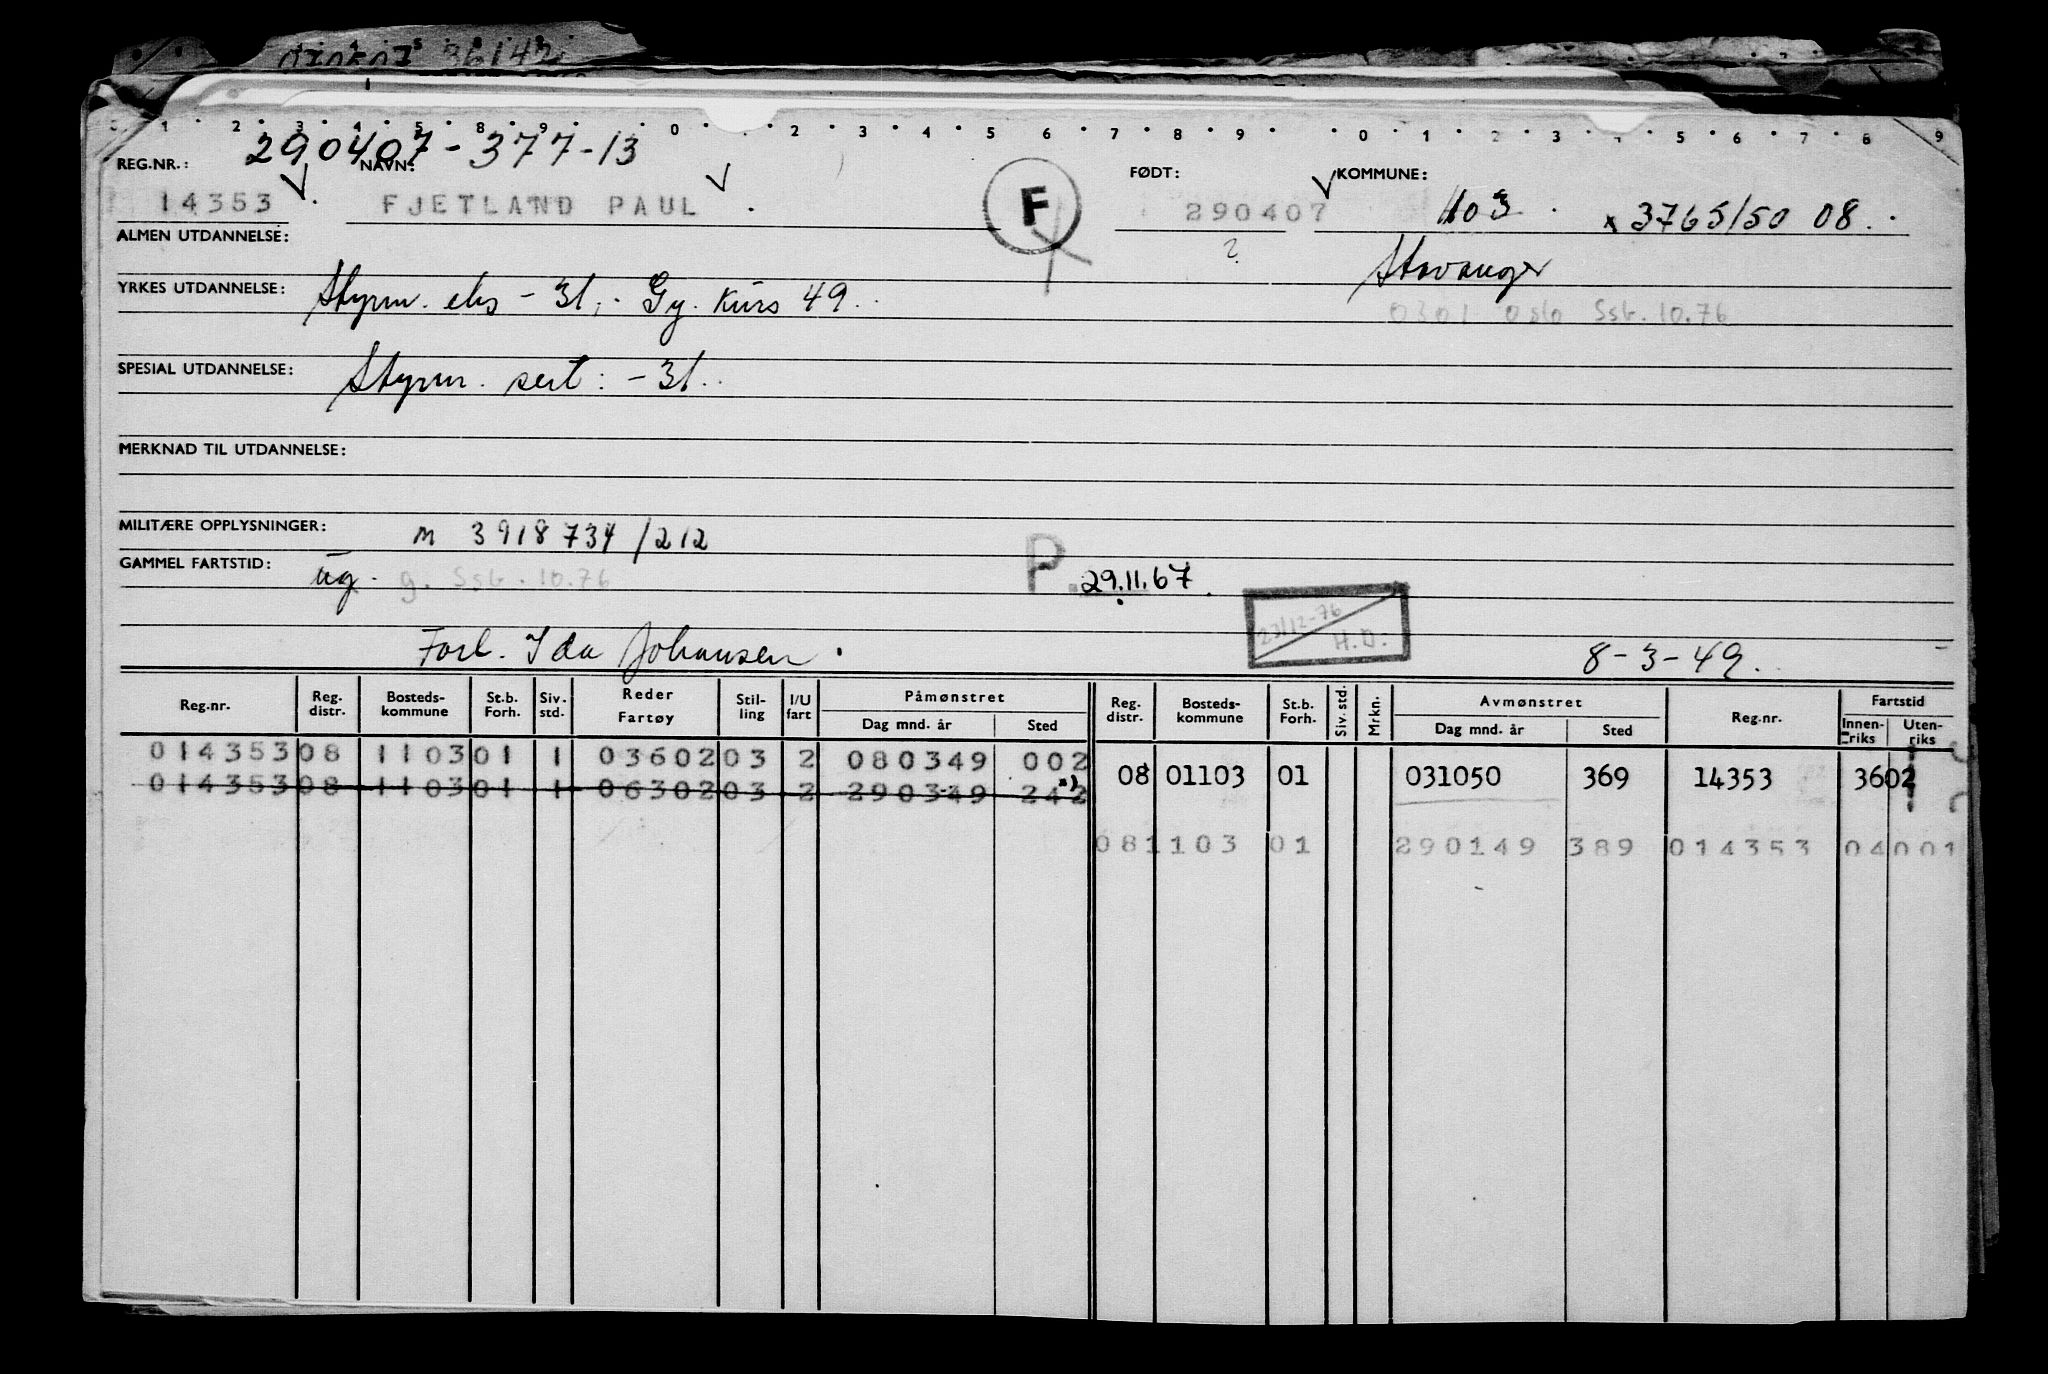 070507 36142
1 2 3 4 5 8 9 0 2 3 4 5 6 7 8 9 0 1 2 3 4 5 6 7 8 9
290407-377-13
REG.NR.: NAVN: FØDT: KOMMUNE:
14353 FJETLAND PAUL F 290407 1103 x 3765/50 08.
ALMEN UTDANNELSE: ? Stavanger
YRKES UTDANNELSE: Styrm. eks -31, Gy. kurs 49. 0301 Oslo Ssb. 10.76
SPESIAL UTDANNELSE: Styrm. sert: -31.
MERKNAD TIL UTDANNELSE:
MILITÆRE OPPLYSNINGER: m 3918734/212
GAMMEL FARTSTID: ug. g. Ssb. 10.76 P. 29.11.67.
23/12-76 H.O.
Forl. Ida Johansen. 8-3-49.
Reg.nr. Reg. distr. Bosteds-kommune St.b. Forh. Siv. std. Reder Fartøy Stil-ling I/U fart Påmønstret Dag mnd. år Sted Reg. distr. Bosteds-kommune St.b. Forh. Siv. std. Mrkn. Avmønstret Dag mnd. år Sted Reg.nr. Fartstid Innen-riks Uten-riks
014353 08 1103 01 1 03602 03 2 080349 002
08 01103 01 031050 369 14353 3602
014353 08 1103 01 1 06302 03 2 290349 242 *)
08 1103 01 290149 389 014353 04 001